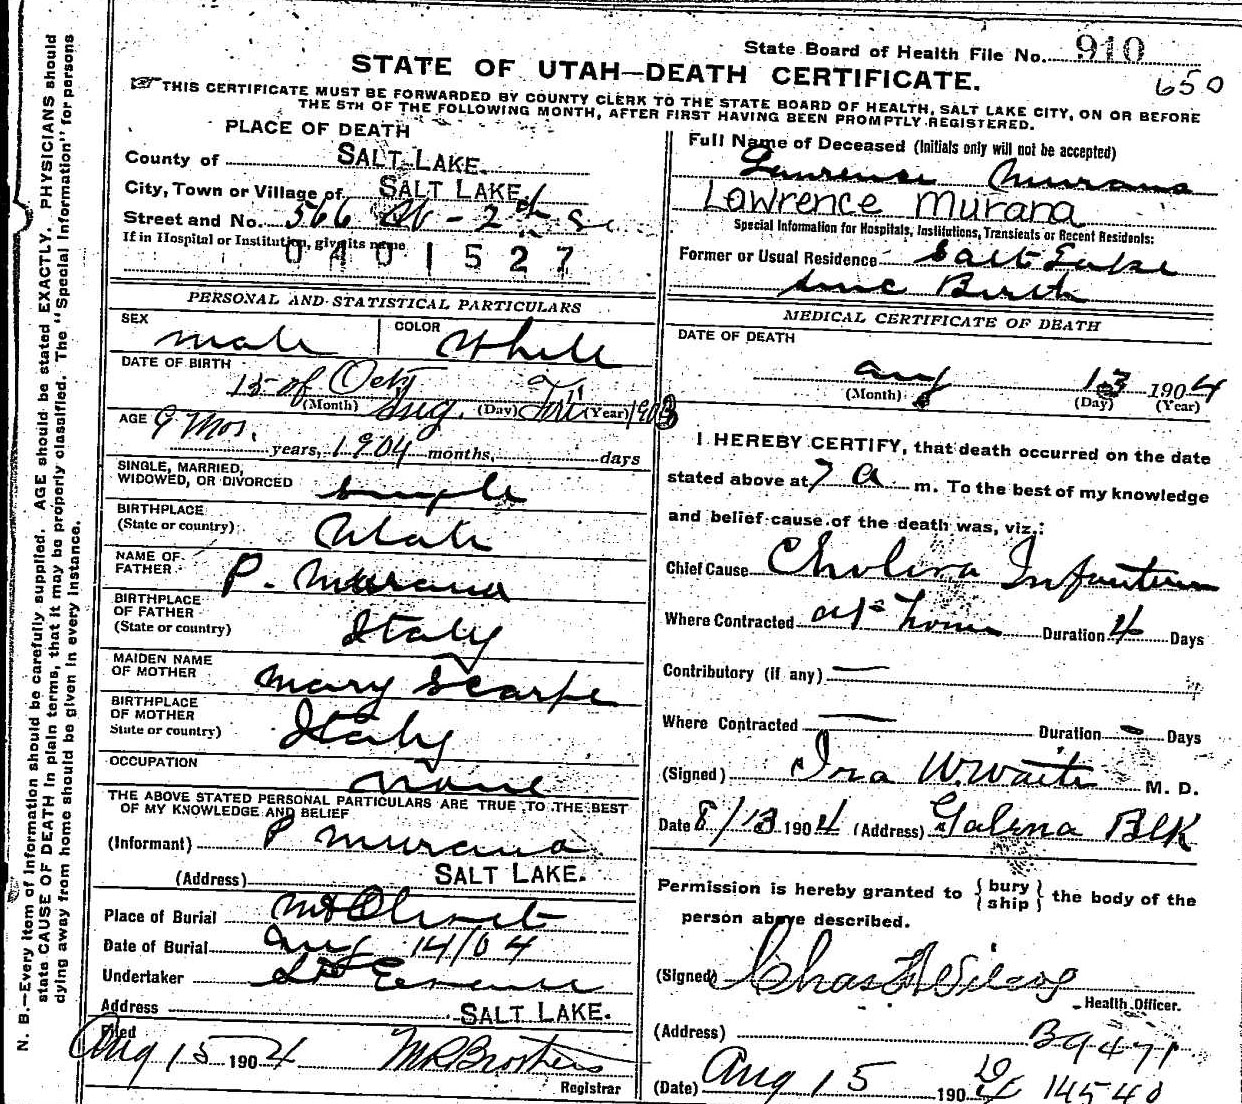 State Board of Health File No. 910
650
STATE OF UTAH—DEATH CERTIFICATE.
THIS CERTIFICATE MUST BE FORWARDED BY COUNTY CLERK TO THE STATE BOARD OF HEALTH, SALT LAKE CITY, ON OR BEFORE
THE 5TH OF THE FOLLOWING MONTH, AFTER FIRST HAVING BEEN PROMPTLY REGISTERED.
PLACE OF DEATH
County of SALT LAKE.
City, Town or Village of SALT LAKE
Street and No. 566 - 2
If in Hospital or Institution, give its name
0401527
PERSONAL AND STATISTICAL PARTICULARS
SEX male COLOR White
DATE OF BIRTH
15 of Oct
(Month) Aug. (Day) (Year) 1903
AGE 9 Mos. years, 1904 months, days
SINGLE, MARRIED,
WIDOWED, OR DIVORCED single
BIRTHPLACE
(State or country) Utah
NAME OF
FATHER P. Murana
BIRTHPLACE
OF FATHER
(State or country) Italy
MAIDEN NAME
OF MOTHER Mary Scarpe
BIRTHPLACE
OF MOTHER
State or country) Italy
OCCUPATION none
THE ABOVE STATED PERSONAL PARTICULARS ARE TRUE TO THE BEST
OF MY KNOWLEDGE AND BELIEF
(Informant) P Murana
(Address) SALT LAKE.
Place of Burial Mt Olivet
Date of Burial Aug 14/04
Undertaker
Address SALT LAKE.
Filed Aug 15 1904
Registrar
Full Name of Deceased (Initials only will not be accepted)
Laurence Murana
Lawrence Murana
Special Information for Hospitals, Institutions, Transients or Recent Residents:
Former or Usual Residence Salt Lake
since Birth
MEDICAL CERTIFICATE OF DEATH
DATE OF DEATH
Aug 13 1904
(Month) (Day) (Year)
I HEREBY CERTIFY, that death occurred on the date
stated above at 7 a m. To the best of my knowledge
and belief cause of the death was, viz,:
Chief Cause Cholera Infantum
Where Contracted at home Duration 4 Days
Contributory (if any) —
Where Contracted — Duration — Days
(Signed) Ira W. Waite M. D.
Date 8/13 1904 (Address) Galena Blk
Permission is hereby granted to { bury ship } the body of the
person above described.
(Signed) Chas Wilcox
Health Officer.
(Address) B9471
(Date) Aug 15 1904 14540
N. B.—Every item of information should be carefully supplied. AGE should be stated EXACTLY. PHYSICIANS should
state CAUSE OF DEATH in plain terms, that it may be properly classified. The "Special Information" for persons
dying away from home should be given in every instance.